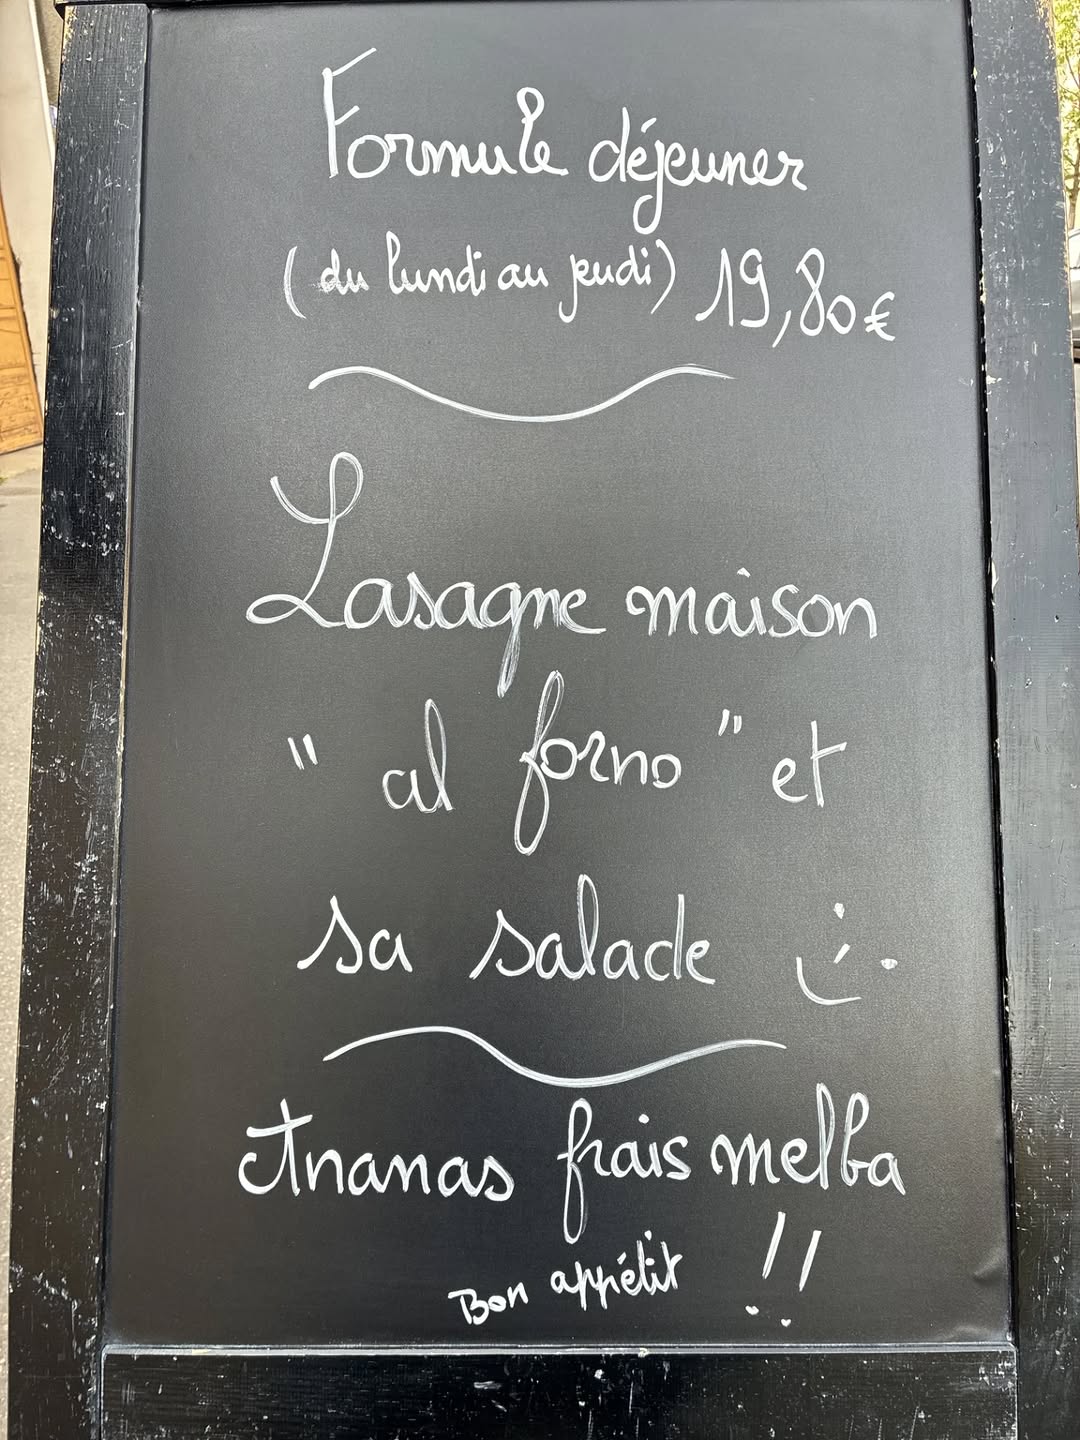 Formule déjeuner
(du lundi au jeudi) 19,80€
Lasagne maison
"al forno" et
sa salade
Ananas frais melba
Bon appétit !!